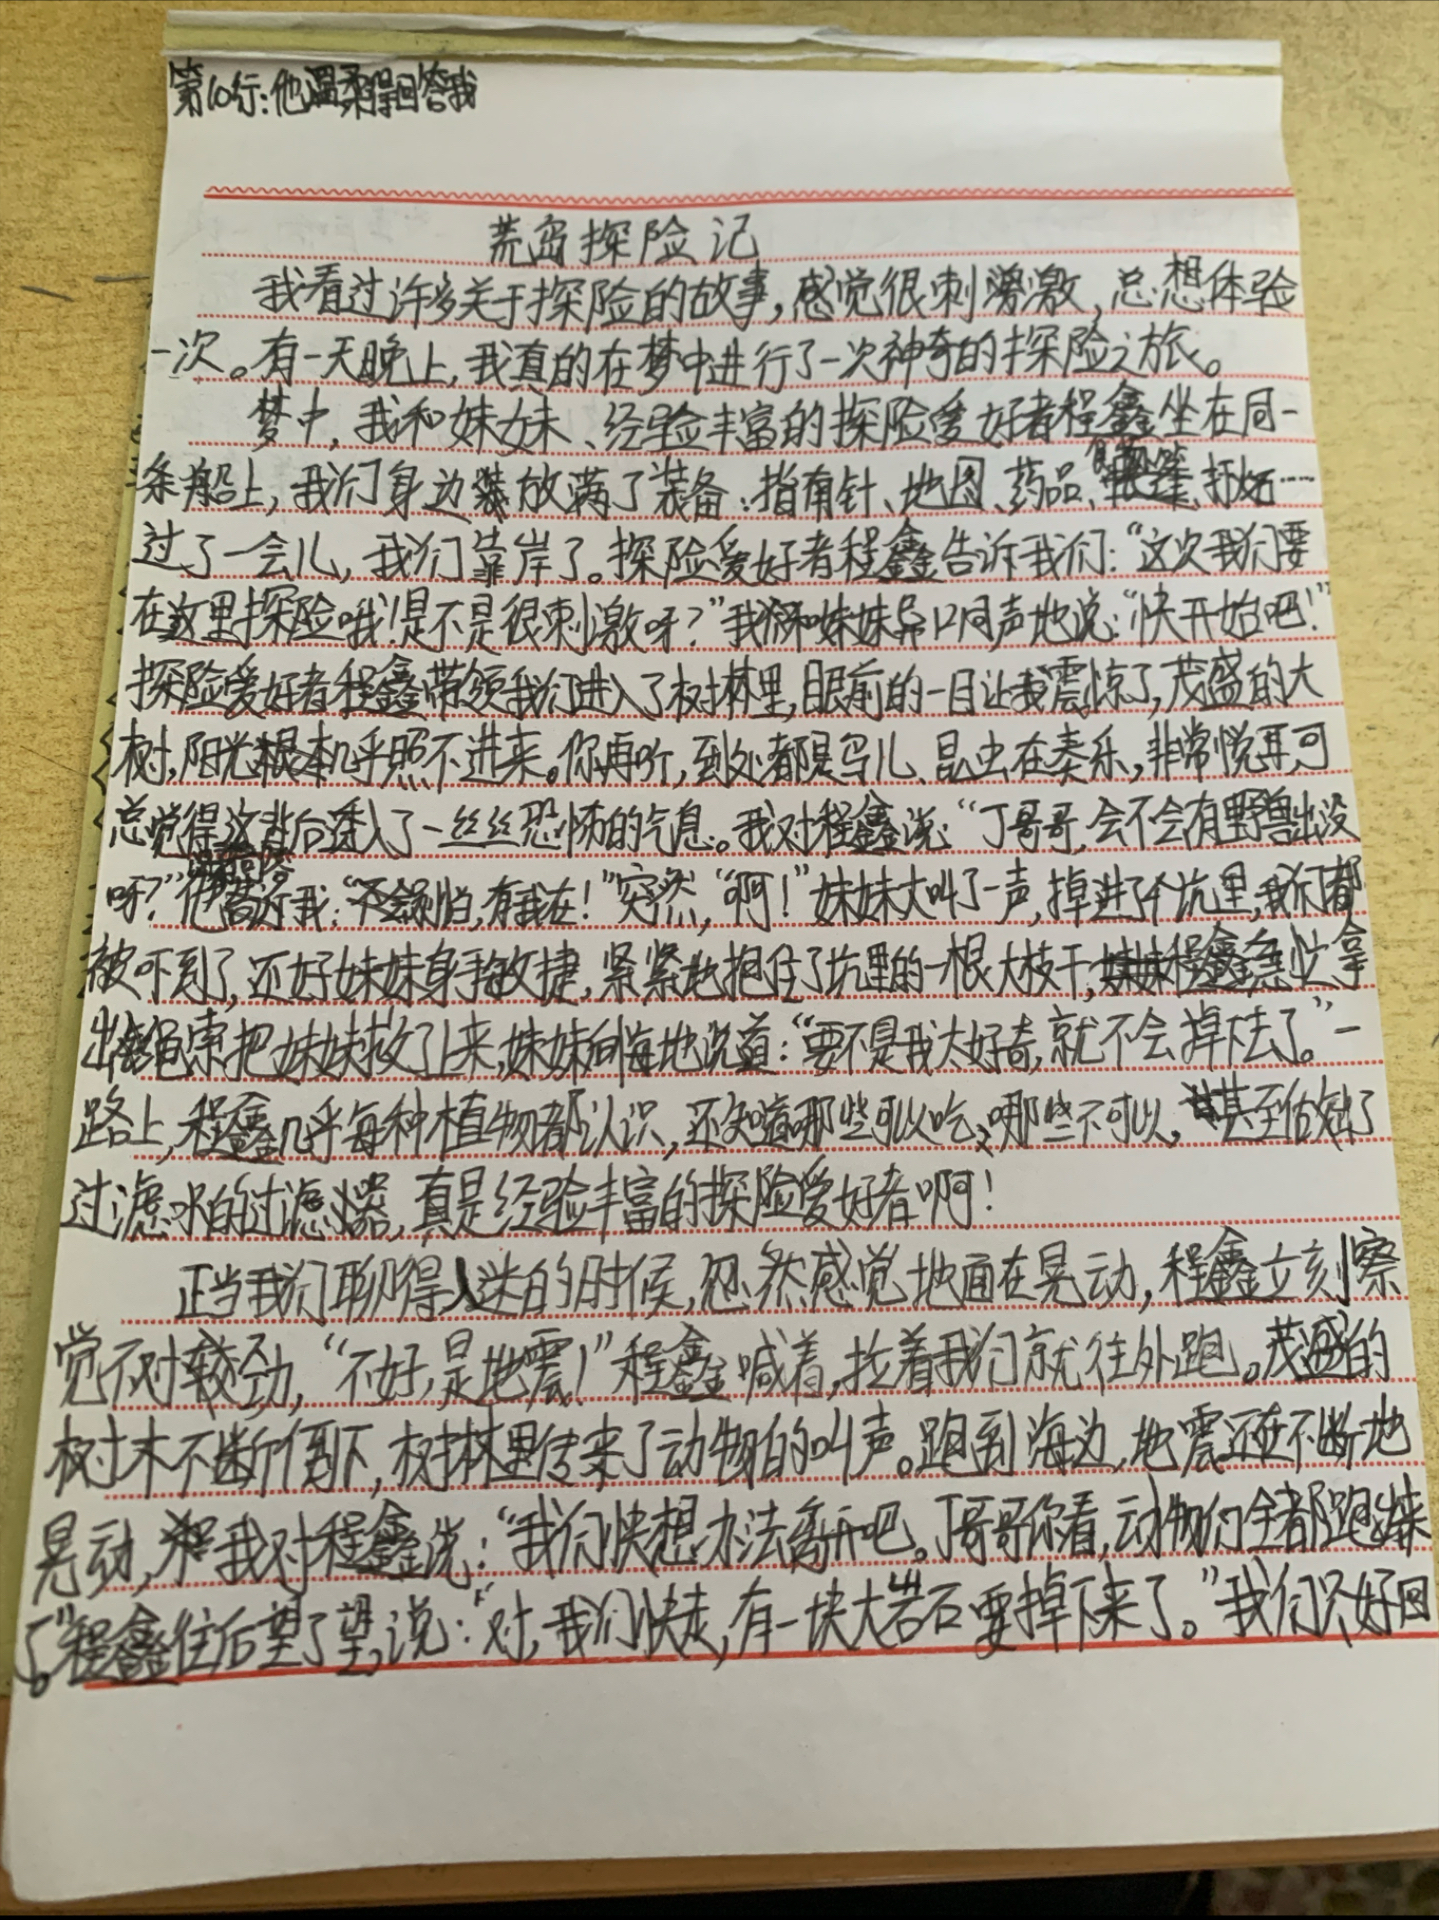 第10行:他温柔得回答我
荒岛探险记
我看过许多关于探险的故事,感觉很刺激,总想体验
一次。有一天晚上,我真的在梦中进行了一次神奇的探险之旅。
梦中,我和妹妹、经验丰富的探险爱好者程鑫坐在同一
条船上,我们身边放满了装备:指南针、地图、药品、帐篷、打火石……
过了一会儿,我们靠岸了。探险爱好者程鑫告诉我们:“这次我们要
在这里探险哦!是不是很刺激呀?”我和妹妹异口同声地说:“快开始吧!”
探险爱好者程鑫带领我们进入了树林里,眼前的一目让我震惊了,茂盛的大
树,阳光根本几乎照不进来。你再听,到处都是鸟儿、昆虫在奏乐,非常悦耳,可
总觉得这背后透入了一丝丝恐怖的气息。我对程鑫说:“丁哥哥,会不会有野兽出没
呀?”他告诉我:“不会别怕,有我在!”突然,“啊!”妹妹大叫了一声,掉进了个坑里,我们都
被吓到了,还好妹妹身手敏捷,紧紧地抱住了坑里的一根大枝干,程鑫急忙拿
出绳索把妹妹救了上来,妹妹后悔地说道:“要不是我太好奇,就不会掉下去了。”一
路上,程鑫几乎每种植物都认识,还知道哪些可以吃,哪些不可以,甚至估制了
过滤水的过滤器,真是经验丰富的探险爱好者啊!
正当我们聊得入迷的时候,忽然感觉地面在晃动,程鑫立刻察
觉不对较劲,“不好,是地震!”程鑫喊着,拉着我们就往外跑。茂盛的
树木不断倒下,树林里传来了动物的叫声。跑到海边,地震还在不断地
晃动,我对程鑫说:“我们快想办法离开吧。丁哥哥你看,动物们全都跑出来
了。”程鑫往后望了望,说:“对,我们快走,有一块大岩石要掉下来了。”我们只好回